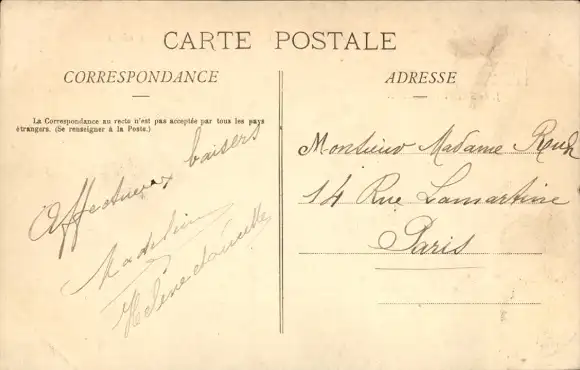 CARTE POSTALE
CORRESPONDANCE
La Correspondance au recto n'est pas acceptée par tous les pays
étrangers. (Se renseigner à la Poste.)
Affectueux baisers
Madeleine
Hélène
ADRESSE
Monsieur Madame
14 Rue Lamartine
Paris